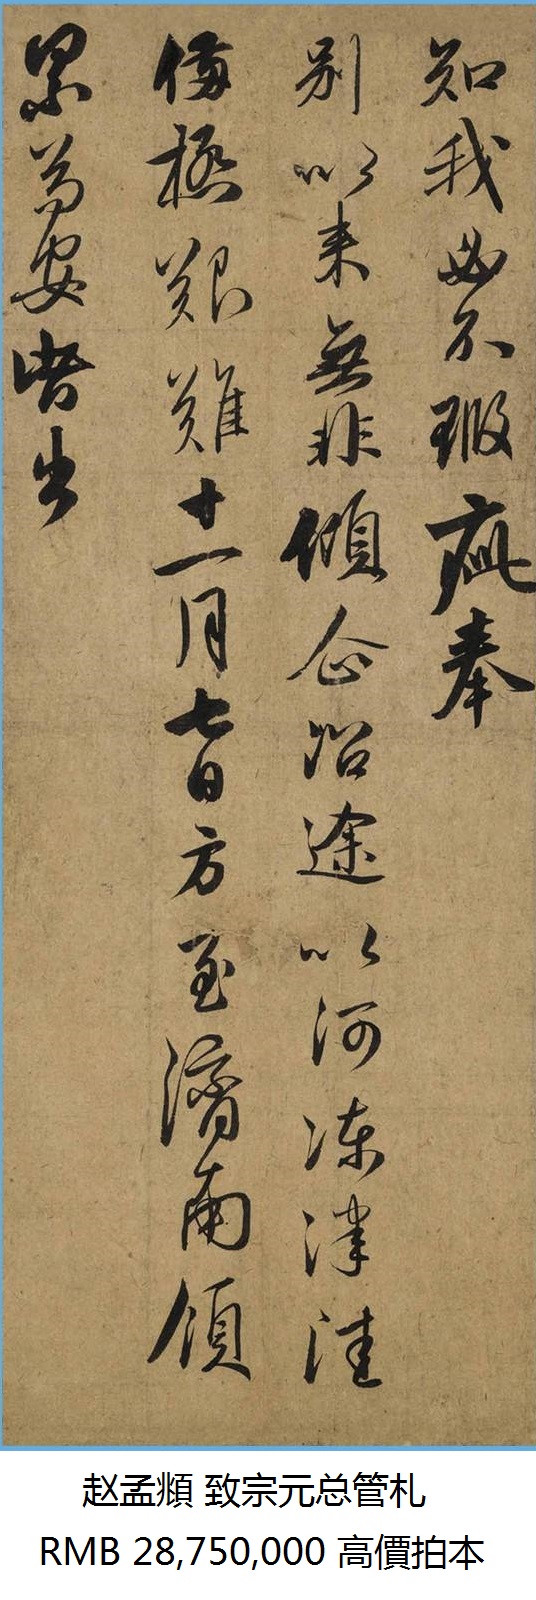 知我必不瑕疵奉
別以来無非傾企沿途以河凍津
備極艱難十一月七日方至濟南領
累苟安皆出
赵孟頫 致宗元总管札
RMB 28,750,000 高價拍本